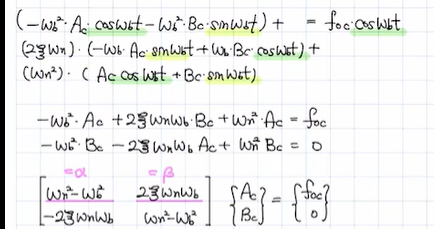 (-ω_b²·A_c·cosω_bt - ω_b²·B_c·sinω_bt) + = f_oc·cosω_bt
(2ξω_n)·(-ω_b·A_c·sinω_bt + ω_b·B_c·cosω_bt) +
(ω_n²)·(A_c cosω_bt + B_c·sinω_bt)
-ω_b²·A_c + 2ξω_nω_b·B_c + ω_n²·A_c = f_oc
-ω_b²·B_c - 2ξω_nω_b A_c + ω_n² B_c = 0
=α =β
[ω_n²-ω_b² 2ξω_nω_b] {A_c} = {f_oc}
[-2ξω_nω_b ω_n²-ω_b²] {B_c} {0}